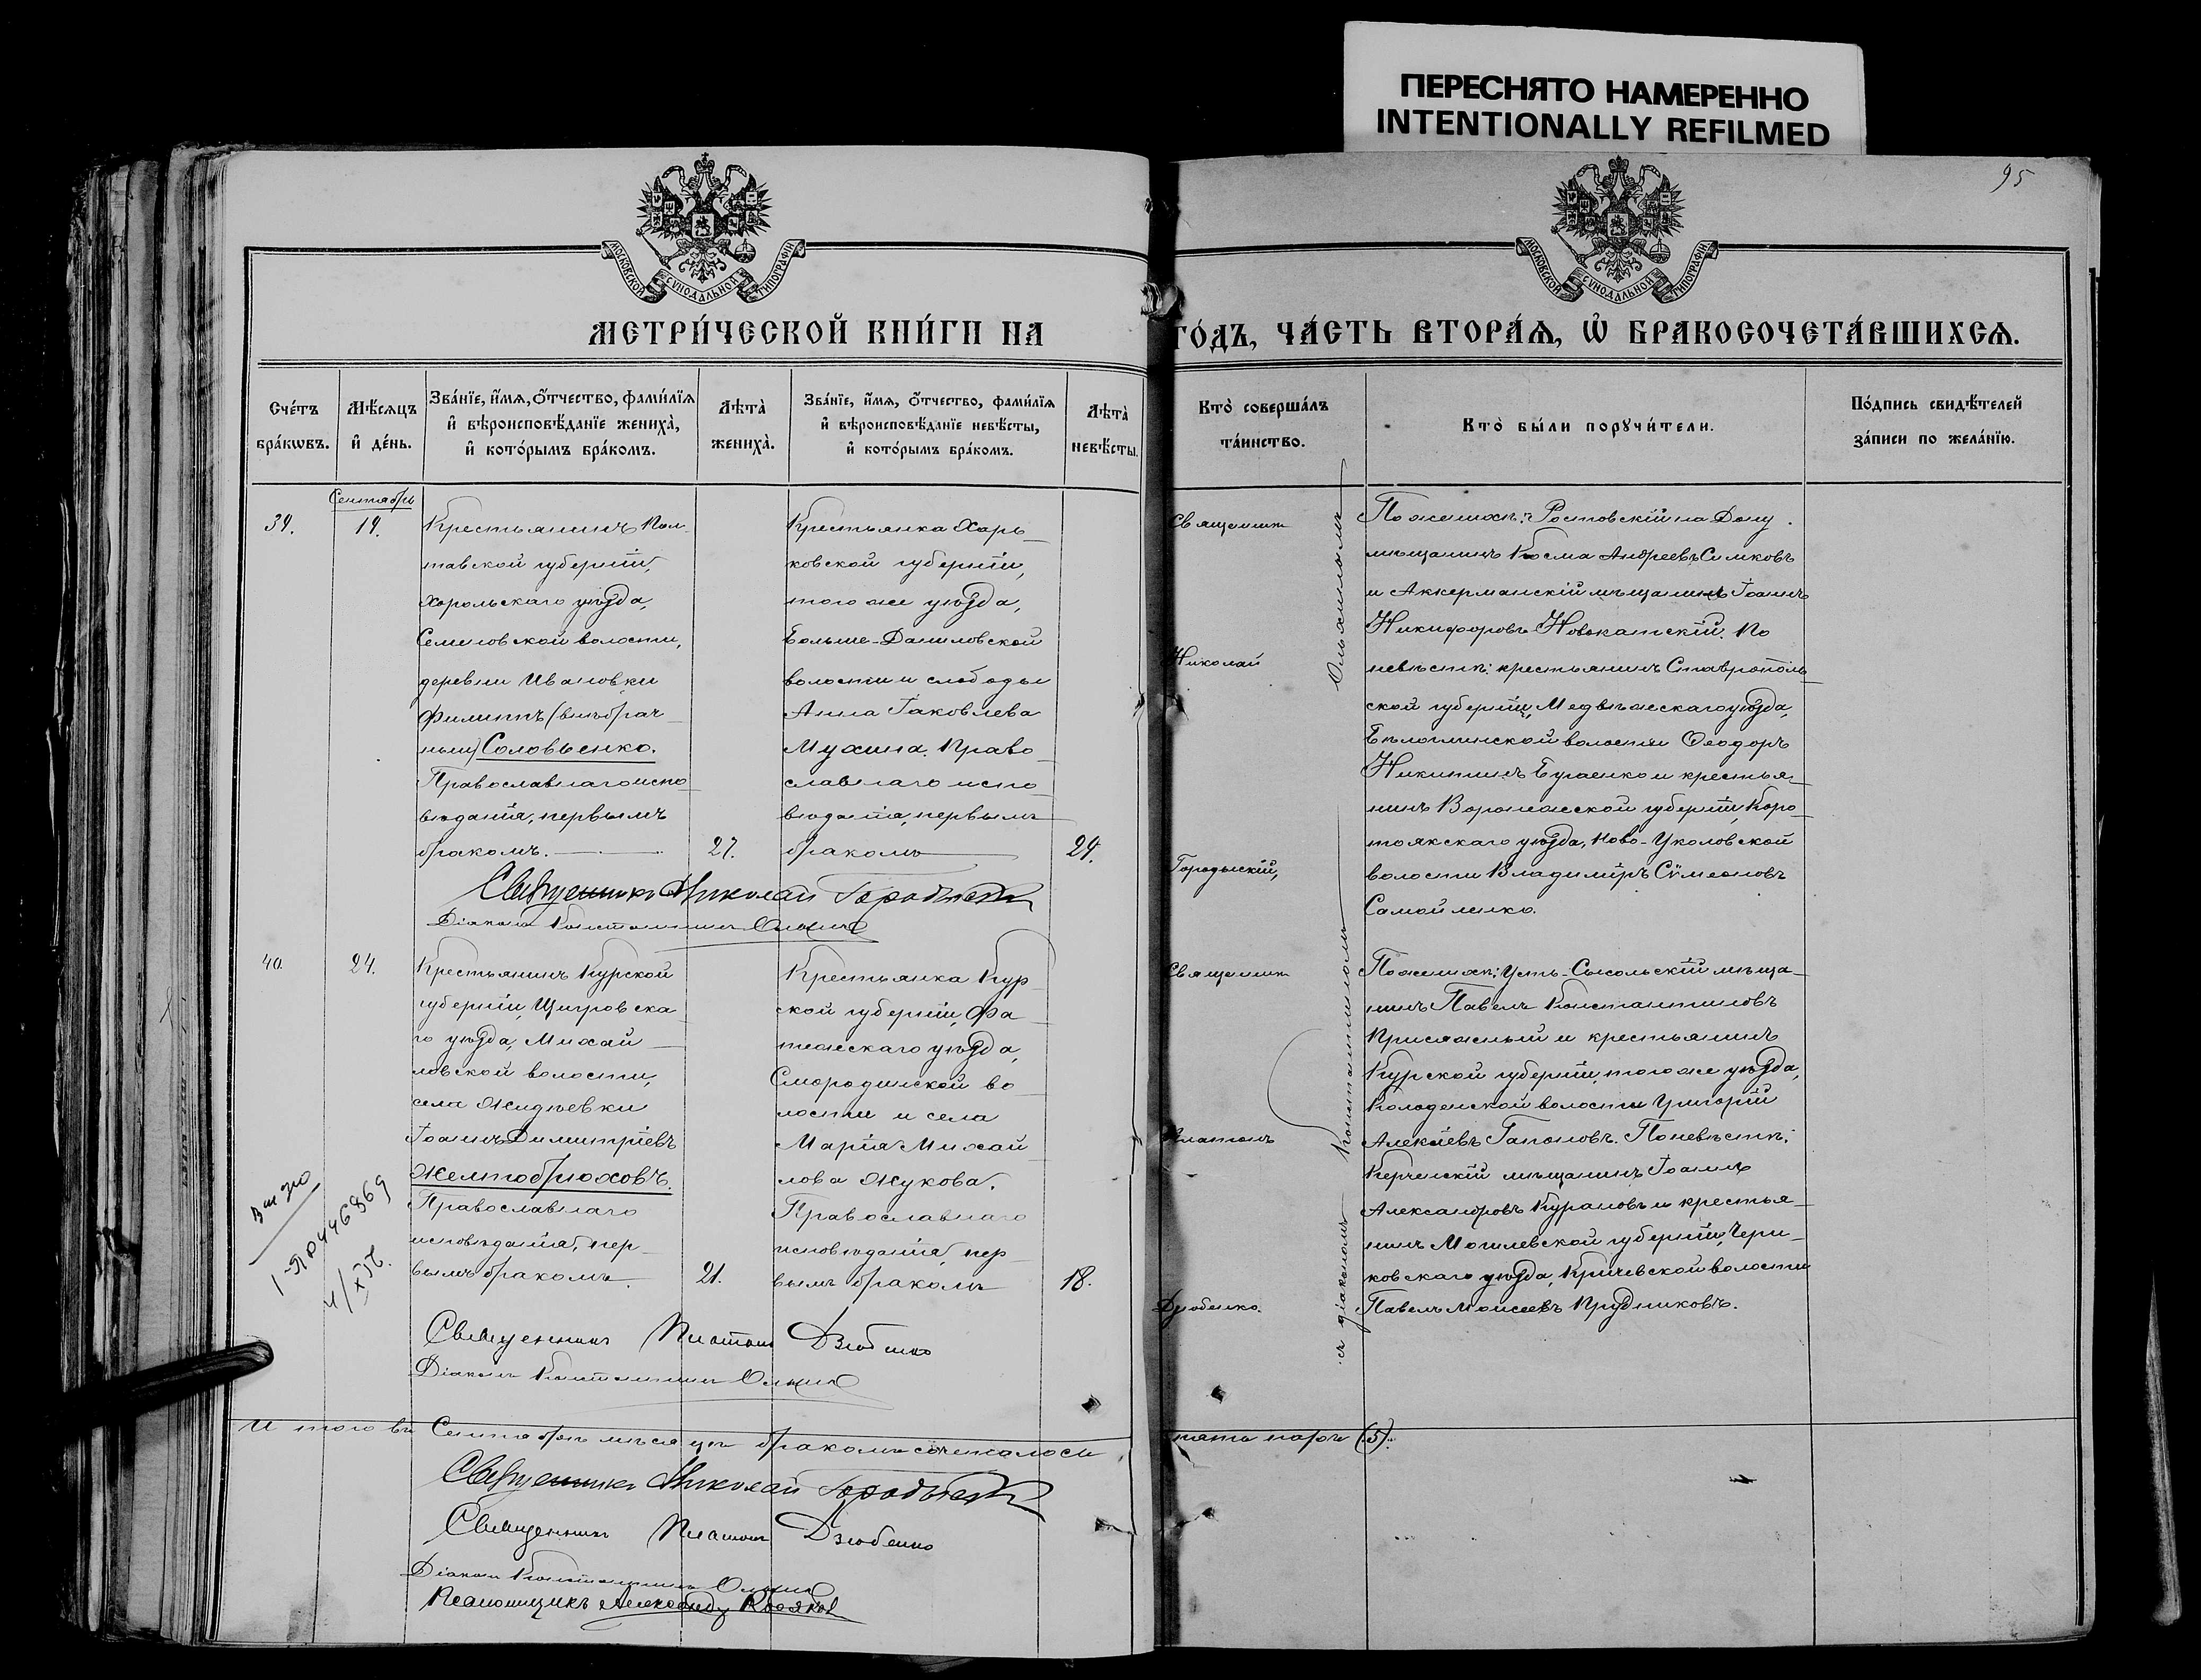 ПЕРЕСНЯТО НАМЕРЕННО
INTENTIONALLY REFILMED
95
МОСКОВСКОЙ СѴНОДАЛЬНОЙ ТИПОГРАФІИ
МОСКОВСКОЙ СѴНОДАЛЬНОЙ ТИПОГРАФІИ
МЕТРИ́ЧЕСКОЙ КНИ́ГИ НА
ГО́ДЪ, ЧА́СТЬ ВТОРА́Ѧ, Ѽ БРАКОСОЧЕТА́ВШИХСѦ.
Сче́тъ
бра́кѡвъ.
Мѣ́сѧцъ
и҆ де́нь.
Зва́нїе, и҆́мѧ, ѻ҆́тчество, фами́лїѧ
и҆ вѣроисповѣ́данїе жениха̀,
и҆ кото́рымъ бра́комъ.
Лѣта̀
жениха̀.
Зва́нїе, и҆́мѧ, ѻ҆́тчество, фами́лїѧ
и҆ вѣроисповѣ́данїе невѣ́сты,
и҆ кото́рымъ бра́комъ.
Лѣта̀
невѣ́сты.
Кто̀ соверша́лъ
та́инство.
Кто̀ бы́ли порꙋчи́тели.
По́дпись свидѣ́телей
за́писи по жела́нїю.
Сентябрь
39.
19.
Крестьянинъ Пол-
тавской губерніи,
Хорольскаго уѣзда,
Семеновской волости,
деревни Ивановки
Филиппъ (внѣбрач-
ный) Соловьенко.
Православнаго испо-
вѣданія, первымъ
бракомъ.
27.
Крестьянка Харь-
ковской губерніи,
того же уѣзда,
Больше-Даниловской
волости и слободы
Анна Іаковлева
Мухина. Право-
славнаго испо-
вѣданія, первымъ
бракомъ
29.
Священникъ
Николай
Городыскій,
По женихѣ: Ростовскій на Дону
мѣщанинъ Косма Андреевъ Симковъ
и Аккерманскій мѣщанинъ Іоаннъ
Никифоровъ Новокатскій. По
невѣстѣ: крестьянинъ Ставрополь-
ской губерніи, Медвѣжескаго уѣзда,
Бѣлоглинской волости Ѳеодоръ
Никитинъ Бугаенко и крестья-
нинъ Воронежской губерніи, Коро-
тоякскаго уѣзда, Ново-Уколовской
волости Владиміръ Сѵмеоновъ
Самойленко.
Священникъ Николай Городыскій
Діаконъ Константинъ
40.
24.
Крестьянинъ Курской
губерніи, Щигровска-
го уѣзда, Михай-
ловской волости,
села Жидѣевки
Іоаннъ Димитріевъ
Желтобрюховъ.
Православнаго
исповѣданія, пер-
вымъ бракомъ.
21.
Крестьянка Кур-
ской губерніи, Фа-
тежскаго уѣзда,
Смородинской во-
лости и села
Марія Михай-
лова Жукова.
Православнаго
исповѣданія, пер-
вымъ бракомъ
18.
Священникъ
Платонъ
Дзюбенко.
съ діакономъ Константиномъ
По женихѣ: Усть-Сысольскій мѣща-
нинъ Павелъ Константиновъ
Присяжный и крестьянинъ
Курской губерніи, того же уѣзда,
Колоденской волости Григорій
Алексіевъ Гапоновъ. По невѣстѣ:
Керченскій мѣщанинъ Іоаннъ
Александровъ Курановъ и крестья-
нинъ Могилевской губерніи, Чери-
ковскаго уѣзда, Кричевской волости
Павелъ Моисеевъ Прудниковъ.
Священникъ Платонъ Дзюбенко
Діаконъ Константинъ
Итого въ Сентябрѣ мѣсяцѣ бракомъ сочеталось
пять паръ (5).
Священникъ Николай Городыскій
Священникъ Платонъ Дзюбенко
Діаконъ Константинъ
Псаломщикъ Александръ